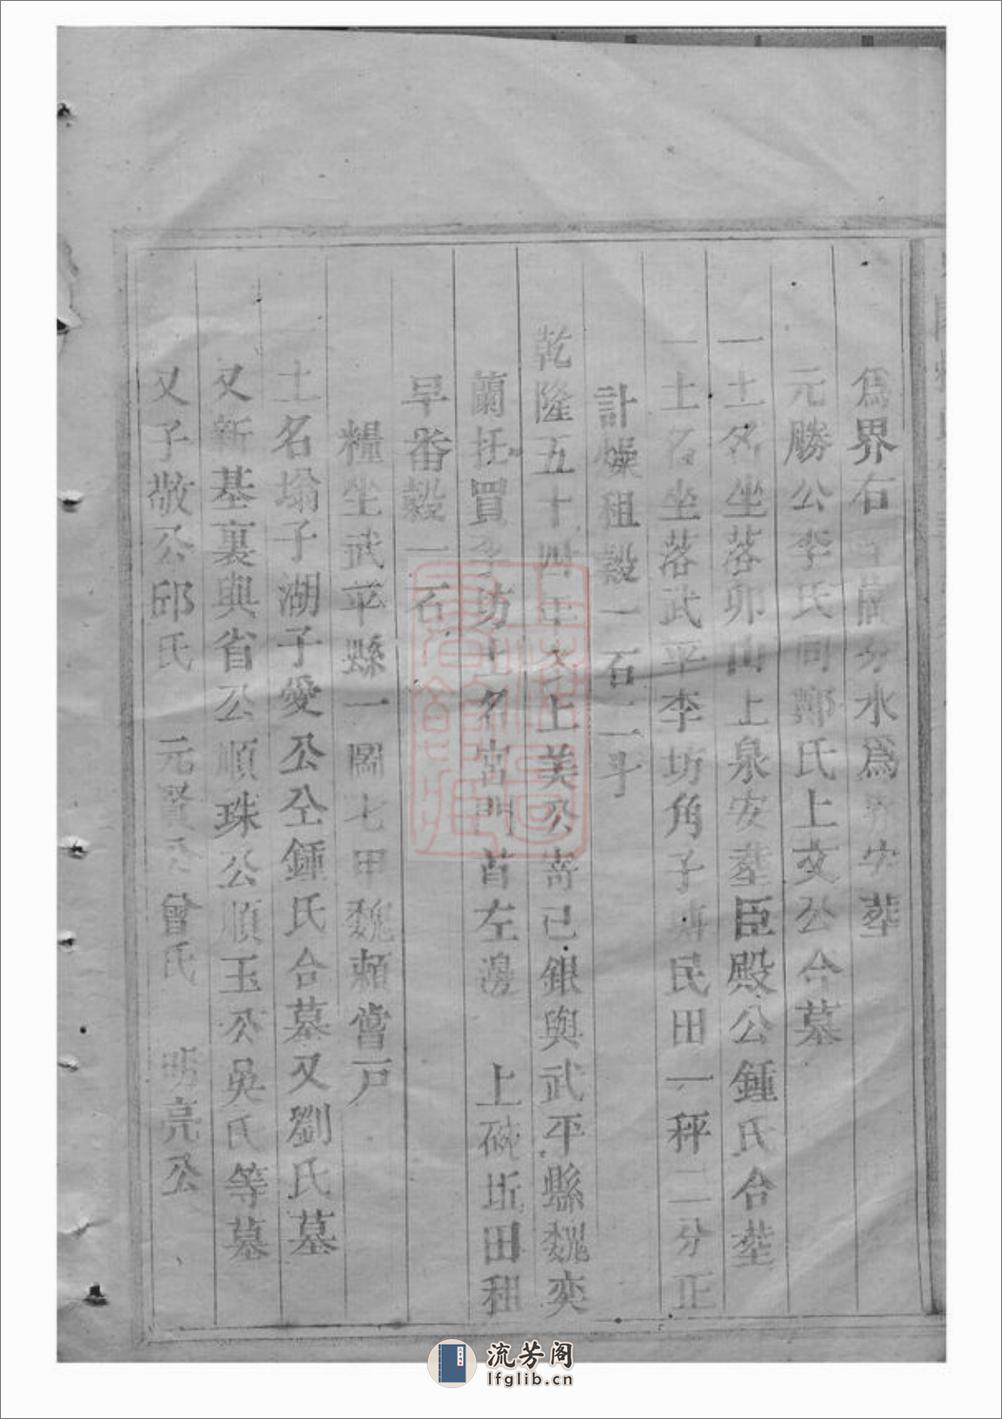 爲界右 分水爲界安葬
元勝公李氏同鄭氏上交公合墓
一土名坐落卯山上泉安葬臣殿公鍾氏合葬
一土名坐落武平李坊角子 民田一秤二分正
計燥租穀一石二斗
乾隆五十四年冬上美公寄己銀與武平縣魏奕
蘭托買李坊土名宮門首左邊 上砍坵田租
早番穀一石
糧坐武平縣一圖七甲魏賴嘗户
土名塌子湖子愛公仝鍾氏合墓又劉氏墓
又新基裏與省公順珠公順玉公吳氏等墓
又子敬公邱氏 元賢公曾氏 明亮公
流芳阁
lfglib.cn